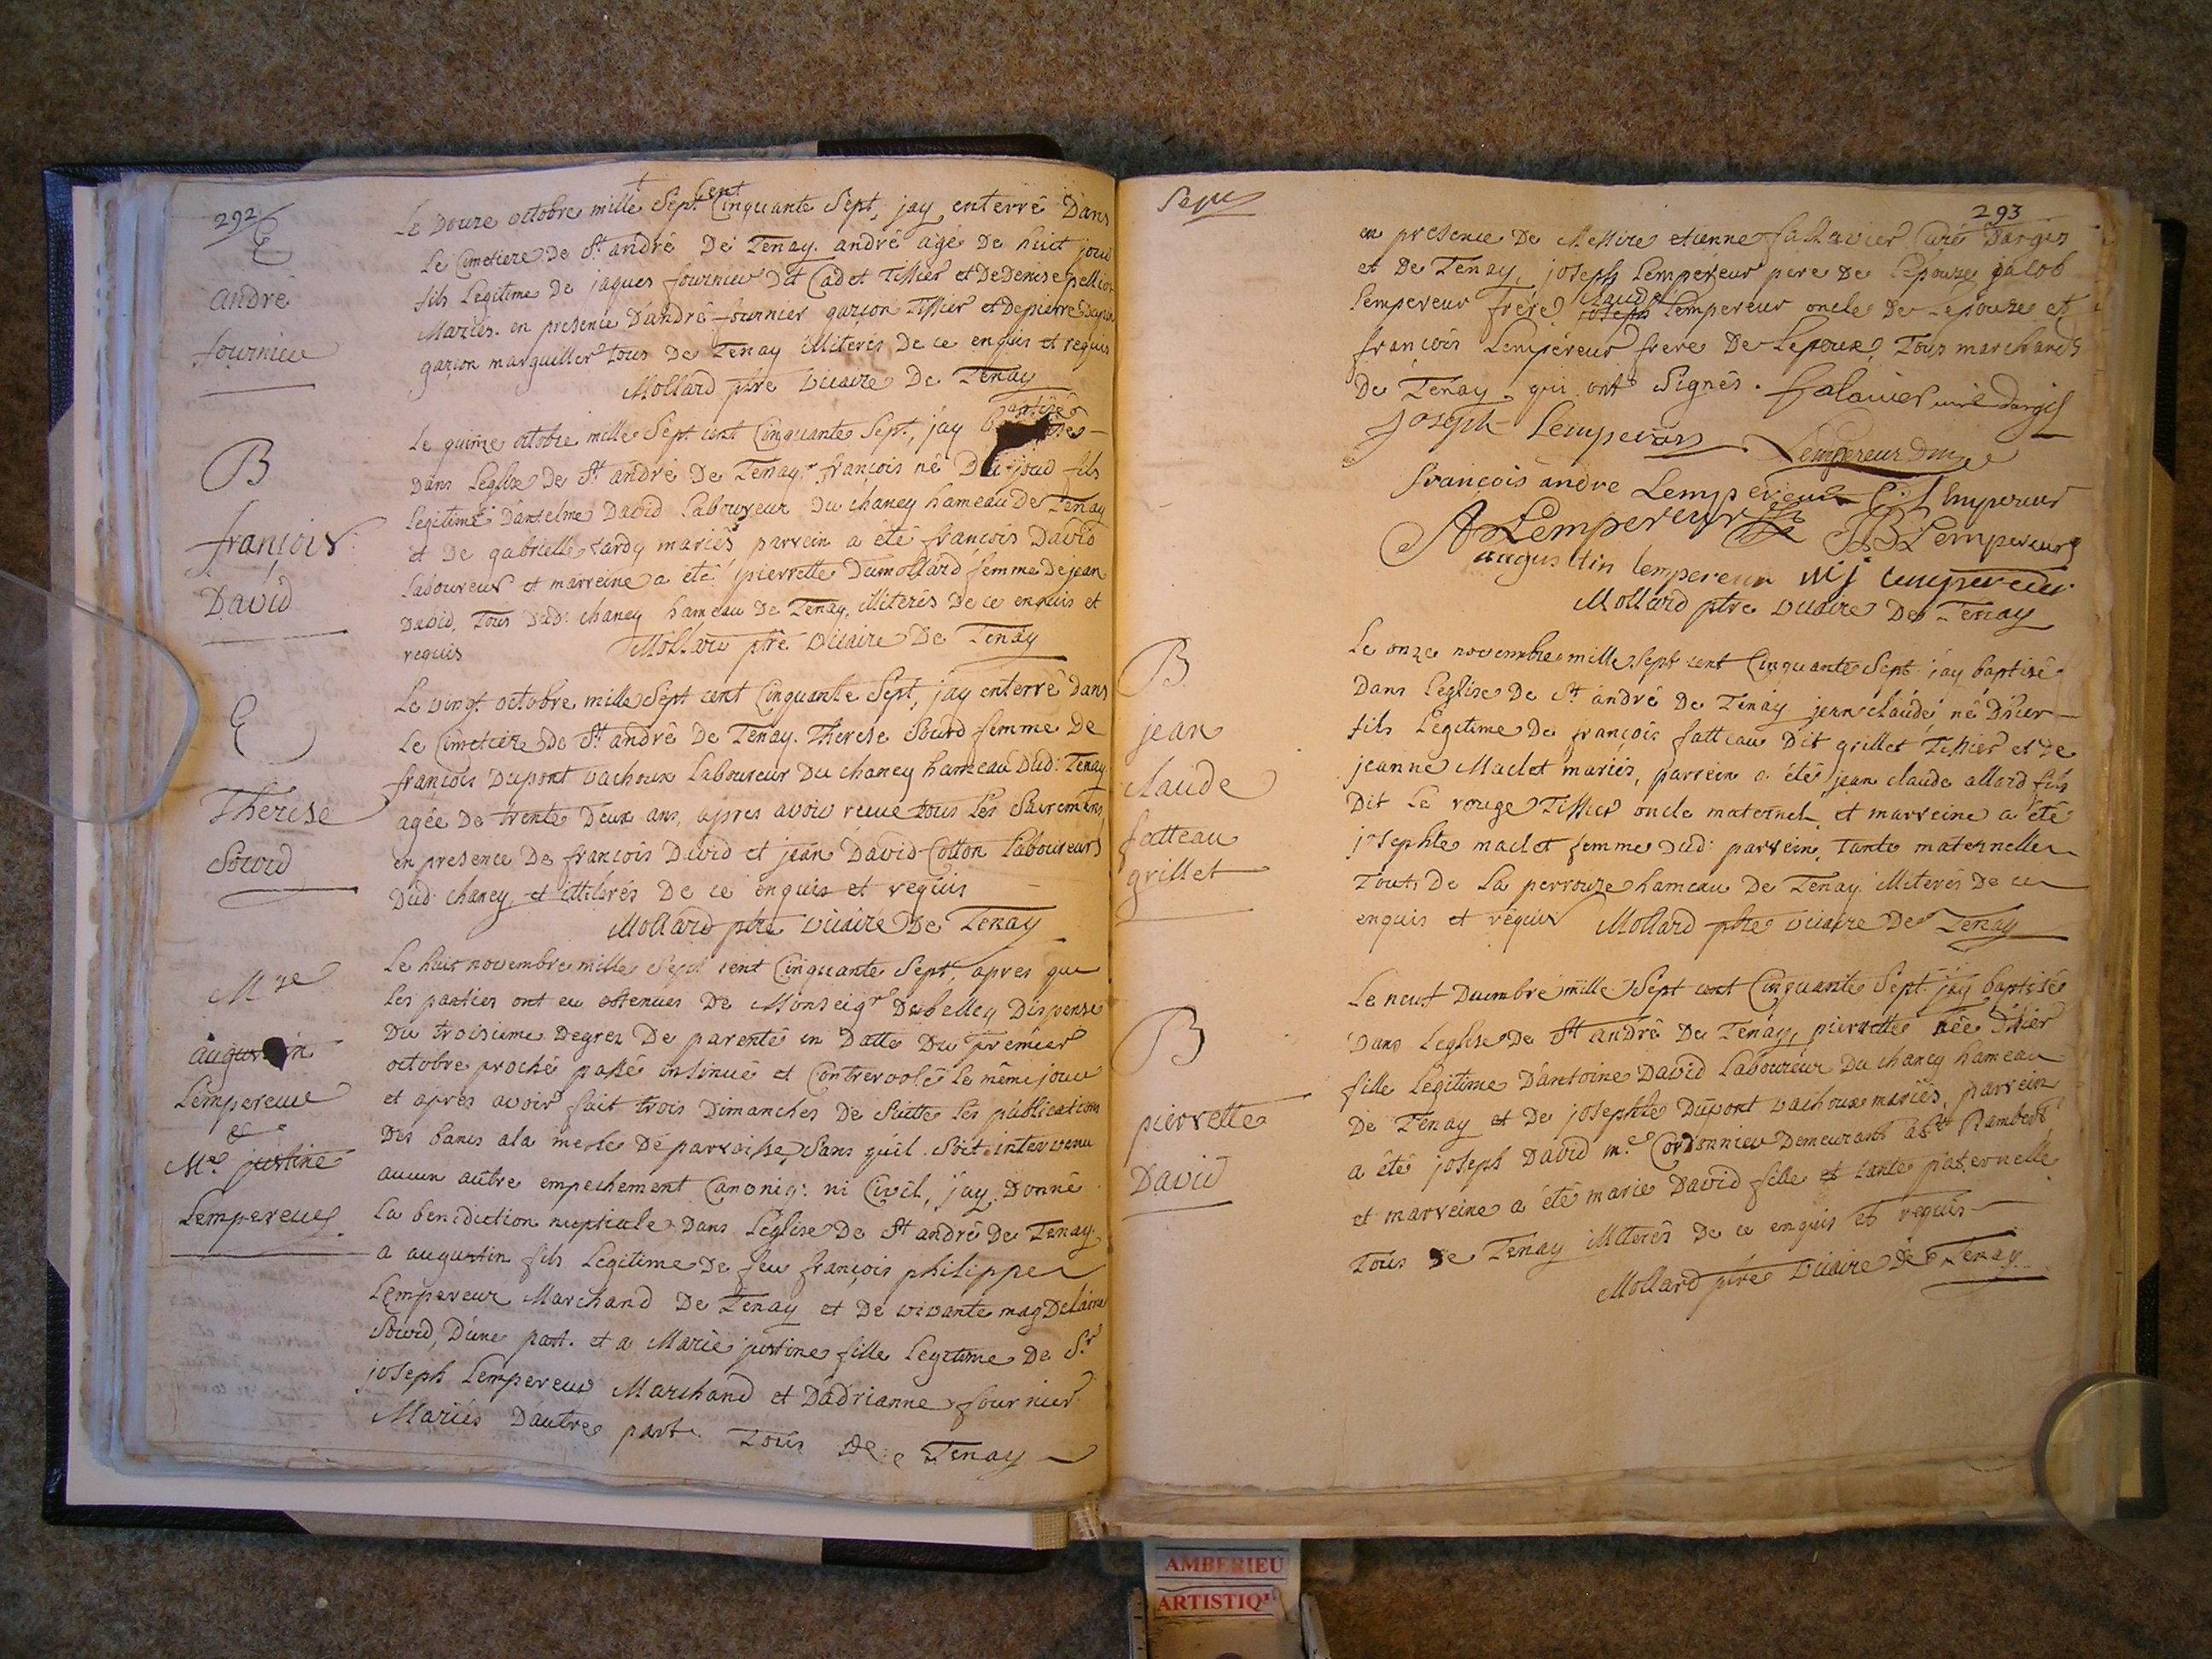 292
E
andré
fournier
Le Douze octobre mille Sept Cent Cinquante Sept, jay enterré Dans
Le Cimetiere De St andré De Tenay. andré agé De huit jour
fils Legitime De jaques fournier Dit Cadet Tissier et De Denise pellicot
Mariés. en presence D'andré fournier garçon Tissier et De pierre
garçon marguiller tous De Tenay illiterés De ce enquis et requis
Mollard ptre vicaire De Tenay
B
françois
David
Le quinze octobre mille Sept cent Cinquante Sept, jay baptizé
Dans Leglise De St andré De Tenay, françois né jour fils
Legitime D'antelme David Laboureur Du chaney hameau De Tenay
et De gabrielle tardy mariés, parrein a été françois David
Laboureur et marreine a été pierrette Dumollard femme De jean
David, Tous Dud: chaney hameau De Tenay, illiterés De ce enquis et
requis Mollard ptre vicaire De Tenay
E
Therese
Sourd
Le vingt octobre mille Sept cent Cinquante Sept, jay enterré Dans
Le Cimetiere De St andré De Tenay. Therese Sourd femme De
françois Dupont vachoux Laboureur Du chaney hameau Dud: Tenay
agée De trente Deux ans, apres avoir recue tous Les Sacremens,
en presence De françois David et jean David-Cotton Laboureurs
Dud: chaney, et illiterés De ce enquis et requis
Mollard ptre vicaire De Tenay
Mge
augustin
Lempereur
&
Me justine
Lempereur
Le huit novembre mille Sept cent Cinquante Sept apres que
Les parties ont eu obtenues De Monseigr De belley Dispense
Du troisieme Degrez De parenté en Datte Du premier
octobre proche passé insinué et Controrolé le même jour
et apres avoir fait trois Dimanches De suitte Les publications
Des bancs ala messe De parroisse, Sans qu'il Soit intervenu
aucun autre empechement Canoniq: ni Civil, jay Donné
La benediction nuptiale Dans Leglise De St andré De Tenay
a augustin fils Legitime De feu françois philippe
Lempereur Marchand De Tenay et De vivante magDelaine
Sourd, D'une part. et a Marie justine fille Legitime De Sr
joseph Lempereur Marchand et D'adrianne fournier
Mariés D'autre part. Tous De Tenay
293
en presence De Messire etienne fallavier Curé Dargis
et De Tenay, joseph Lempereur pere De Lepouze jacob
Lempereur frere, joseph Claude Lempereur oncle De Lepouze et
françois Lempereur frere De Lepoux, Tous marchands
De Tenay qui ont Signés. falavier curé dargis
joseph Lempereur Lempereur
françois andre Lempereur C: Lempereur
A Lempereur JB Lempereur
augusttin lempereur MJ Lempereur
Mollard ptre vicaire De Tenay
B
jean
claude
fatteau
grillet
Le onze novembre mille Sept cent Cinquante Sept jay baptisé
Dans Leglise De St andré De Tenay jean claude né D'hier
fils Legitime De françois fatteau Dit grillet Tissier et De
jeanne Maclet mariés, parrein a été jean claude allard fils
Dit Le rouge Tissier oncle maternel, et marreine a été
josephte maclet femme Dud: parrein, Tante maternelle
Tous De La perrouze hameau De Tenay illiterés De ce
enquis et requis Mollard ptre vicaire De Tenay
B
pierrette
David
Le neuf Decembre mille Sept cent Cinquante Sept jay baptisée
Dans Leglise De St andré De Tenay, pierrette née D'hier
fille Legitime D'antoine David Laboureur Du chaney hameau
De Tenay et De josephte Dupont vachoux mariés, parrein
a été joseph David me Cordonnier Demeurant a St Rambert,
et marreine a été marie David fille et tante paternelle
Tous De Tenay illiterés De ce enquis et requis
Mollard ptre vicaire De Tenay
AMBERIEU
ARTISTIQ